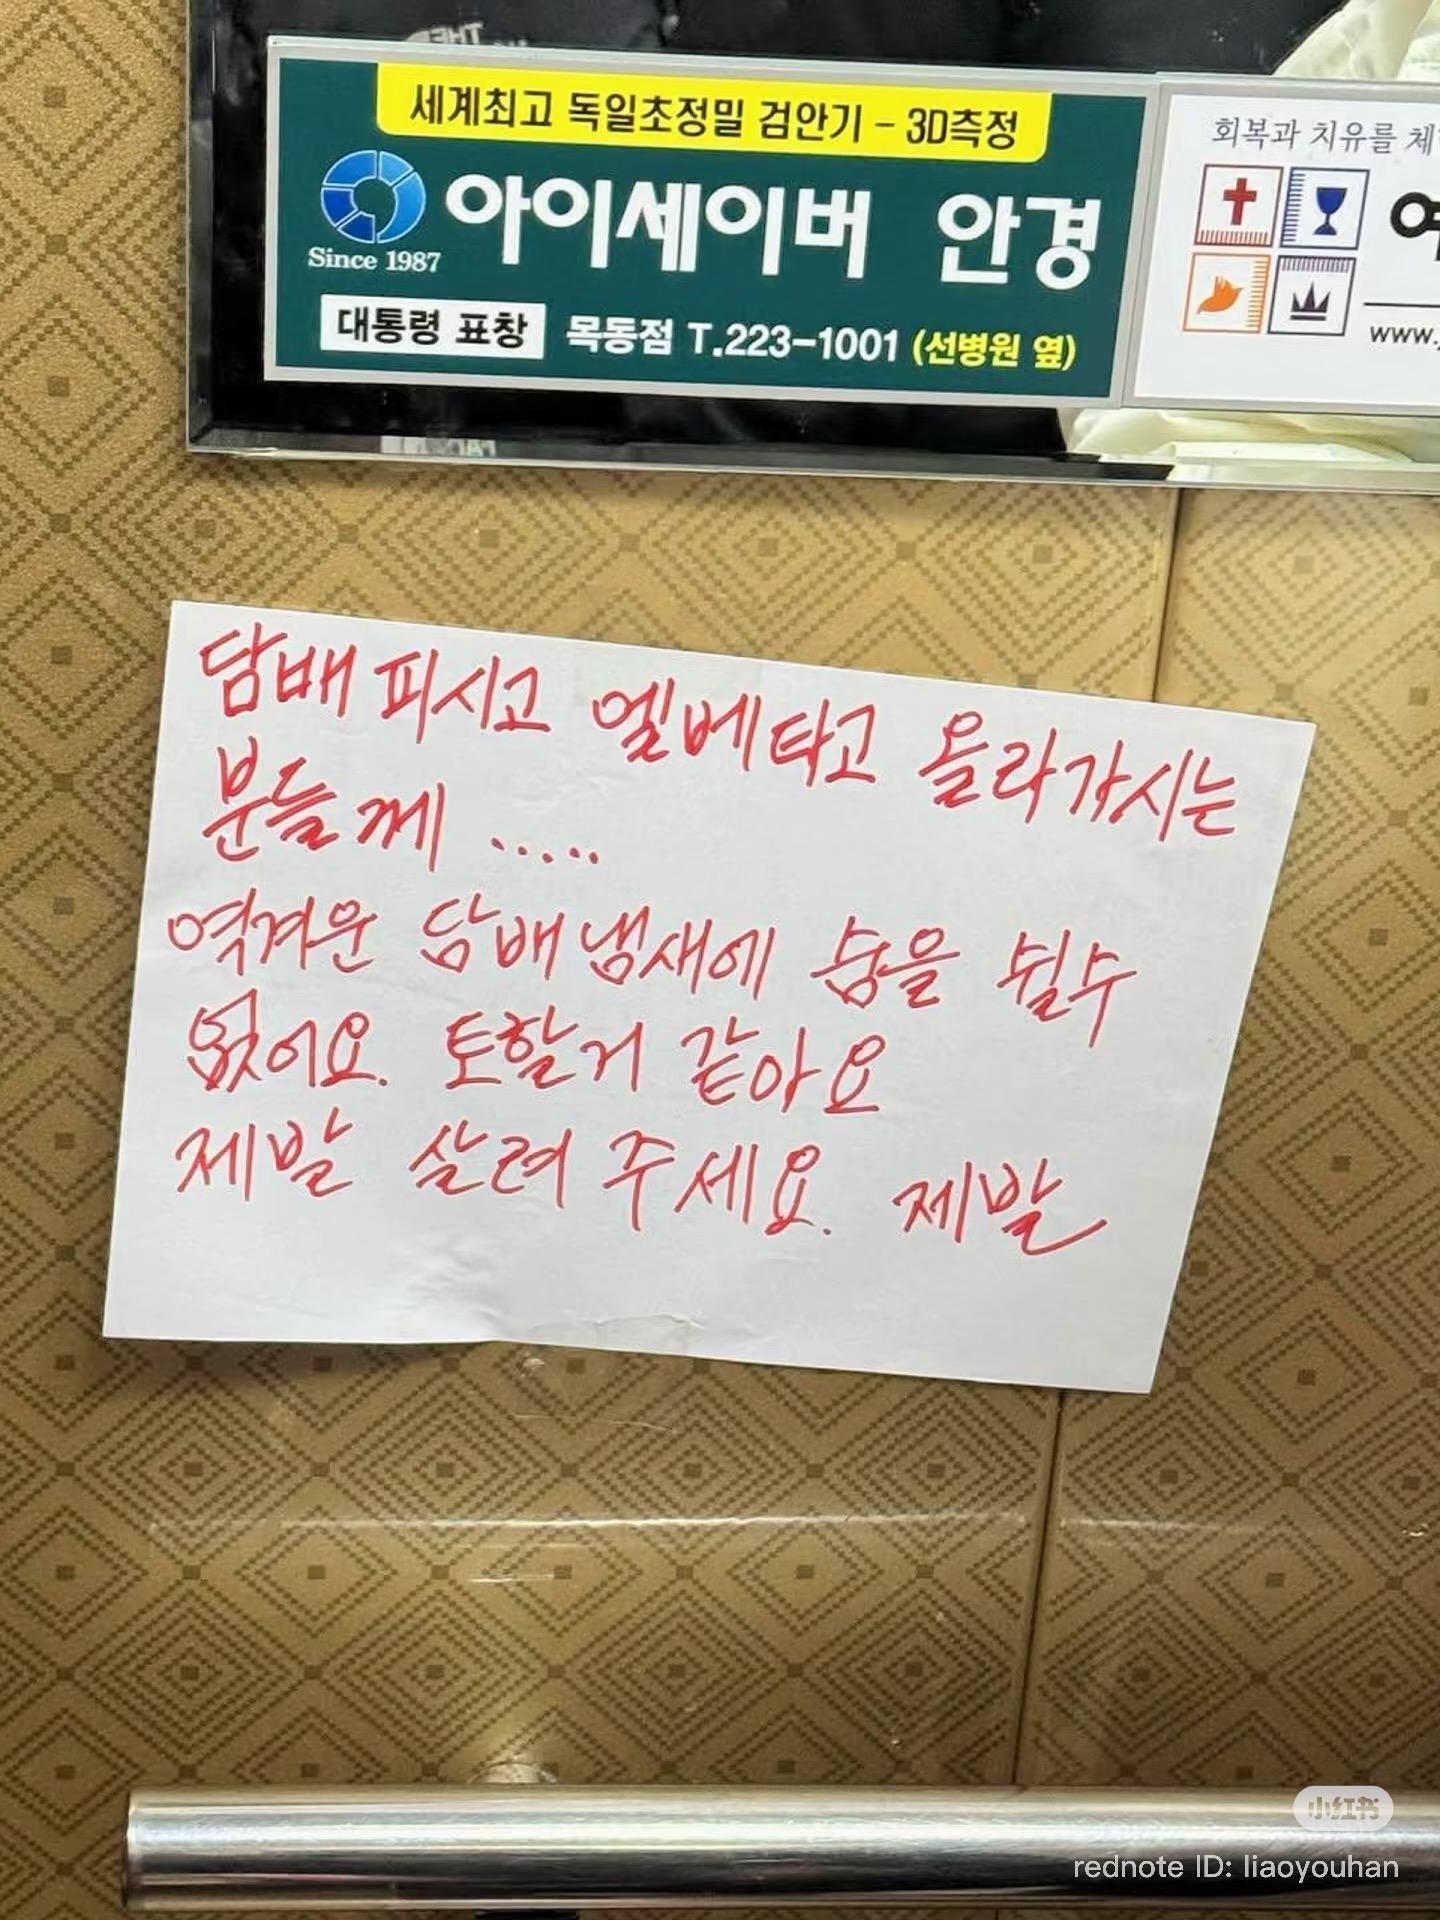 세계최고 독일초정밀 검안기 - 3D측정
아이세이버 안경
Since 1987
대통령 표창 목동점 T.223-1001 (선병원 옆)
회복과 치유를
www.
담배 피시고 엘베타고 올라가시는
분들께 .....
역겨운 담배냄새에 숨을 쉴수
없어요. 토할거 같아요
제발 살려 주세요. 제발
小红书
rednote ID: liaoyouhan